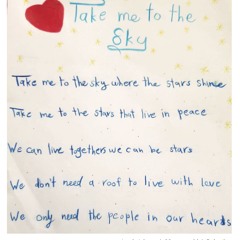 Take me to the
Sky
Take me to the sky where the stars shine
Take me to the stars that live in peace
We can live togethers we can be stars
We don't need a roof to live with love
We only need the people in our heards